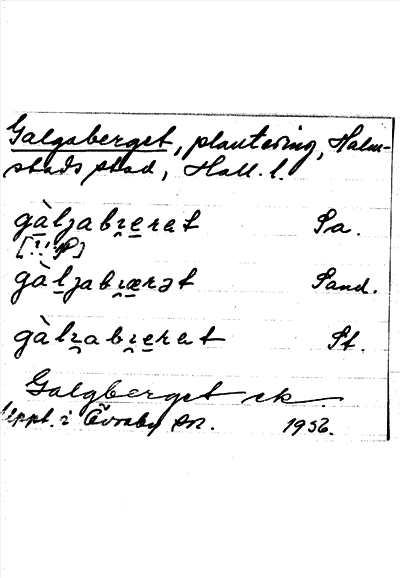 Galgaberget, plantering, Halm-
stads stad, Hall. l.
gàlʒabɪerat Sa.
gàlʒabɪærət Sand.
gàlʒabɪerat St.
Galgberget ek.
Uppt. i Övraby sn. 1956.